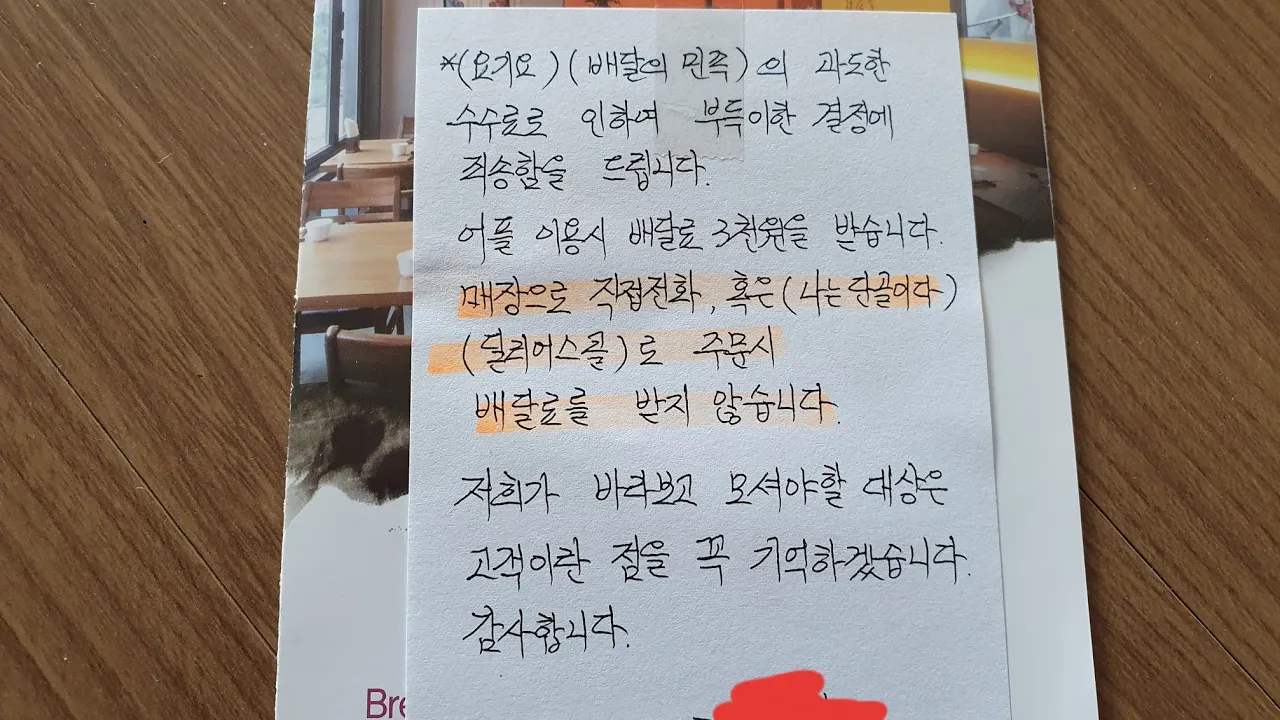 *(요기요)(배달의 민족)의 과도한
수수료로 인하여 부득이한 결정에
죄송함을 드립니다.
어플 이용시 배달료 3천원을 받습니다.
매장으로 직접전화, 혹은(나는단골이다)
(딜리어스콜)로 주문시
배달료를 받지 않습니다.
저희가 바라보고 모셔야할 대상은
고객이란 점을 꼭 기억하겠습니다.
감사합니다.
Bre